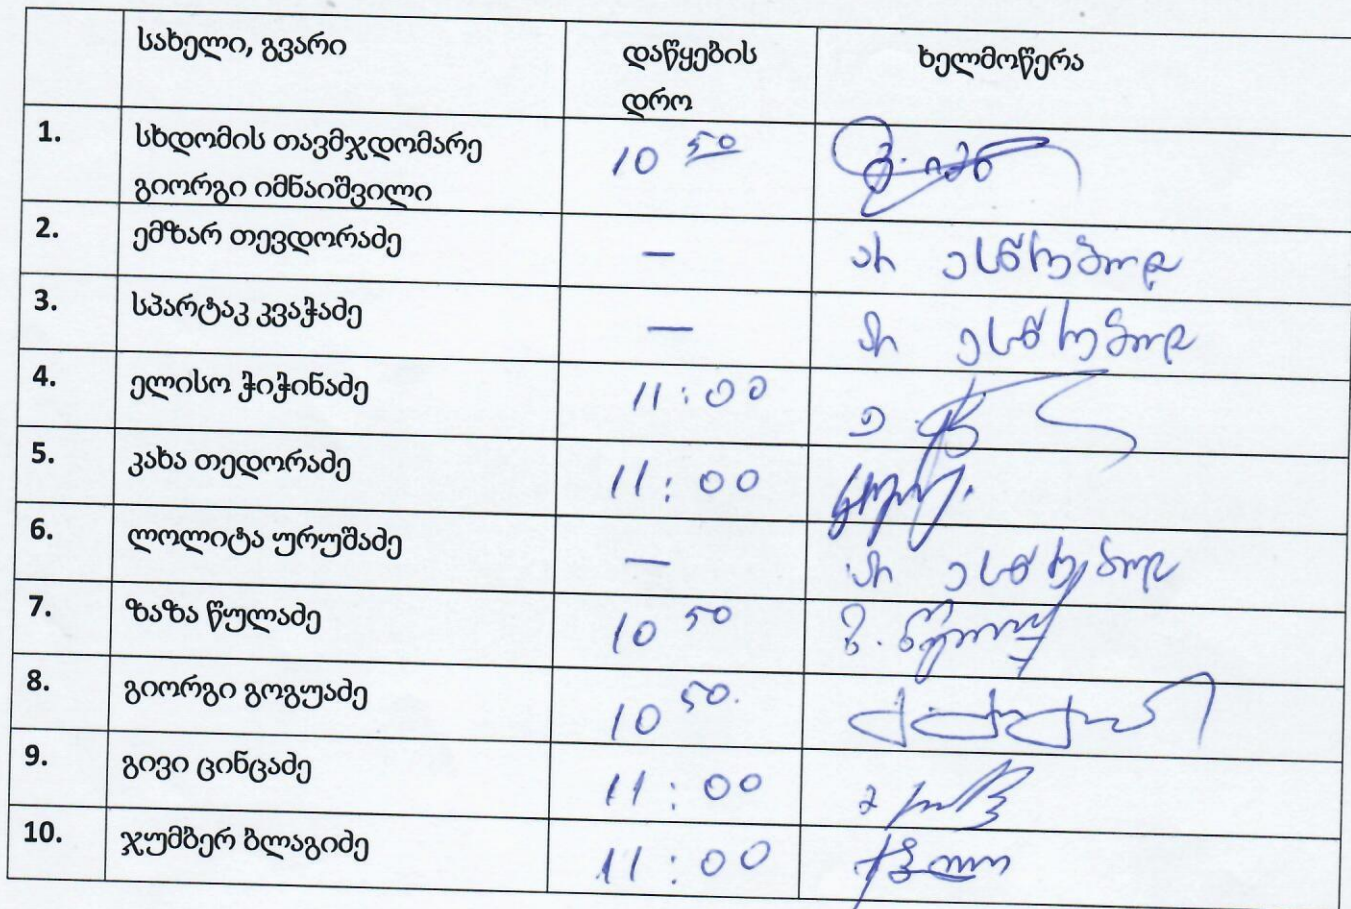 სახელი, გვარი დაწყების ხელმოწერა
დრო
1. სხდომის თავმჯდომარე 10 50
გიორგი იმნაიშვილი
2. ემზარ თევდორაძე — არ ესწრებოდა
3. სპარტაკ კვაჭაძე — არ ესწრებოდა
4. ელისო ჭიჭინაძე 11:00
5. კახა თედორაძე 11:00
6. ლოლიტა ურუშაძე — არ ესწრებოდა
7. ზაზა წულაძე 10 50
8. გიორგი გოგუაძე 10 50.
9. გივი ცინცაძე 11:00
10. ჯუმბერ ბლაგიძე 11:00